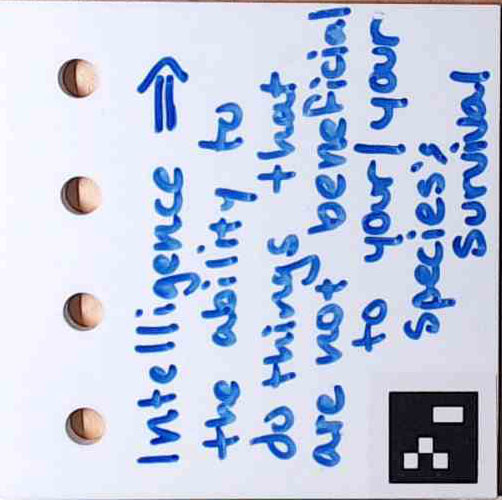 Intelligence ⇒
the ability to
do things that
are not beneficial
to your/your
species's
survival